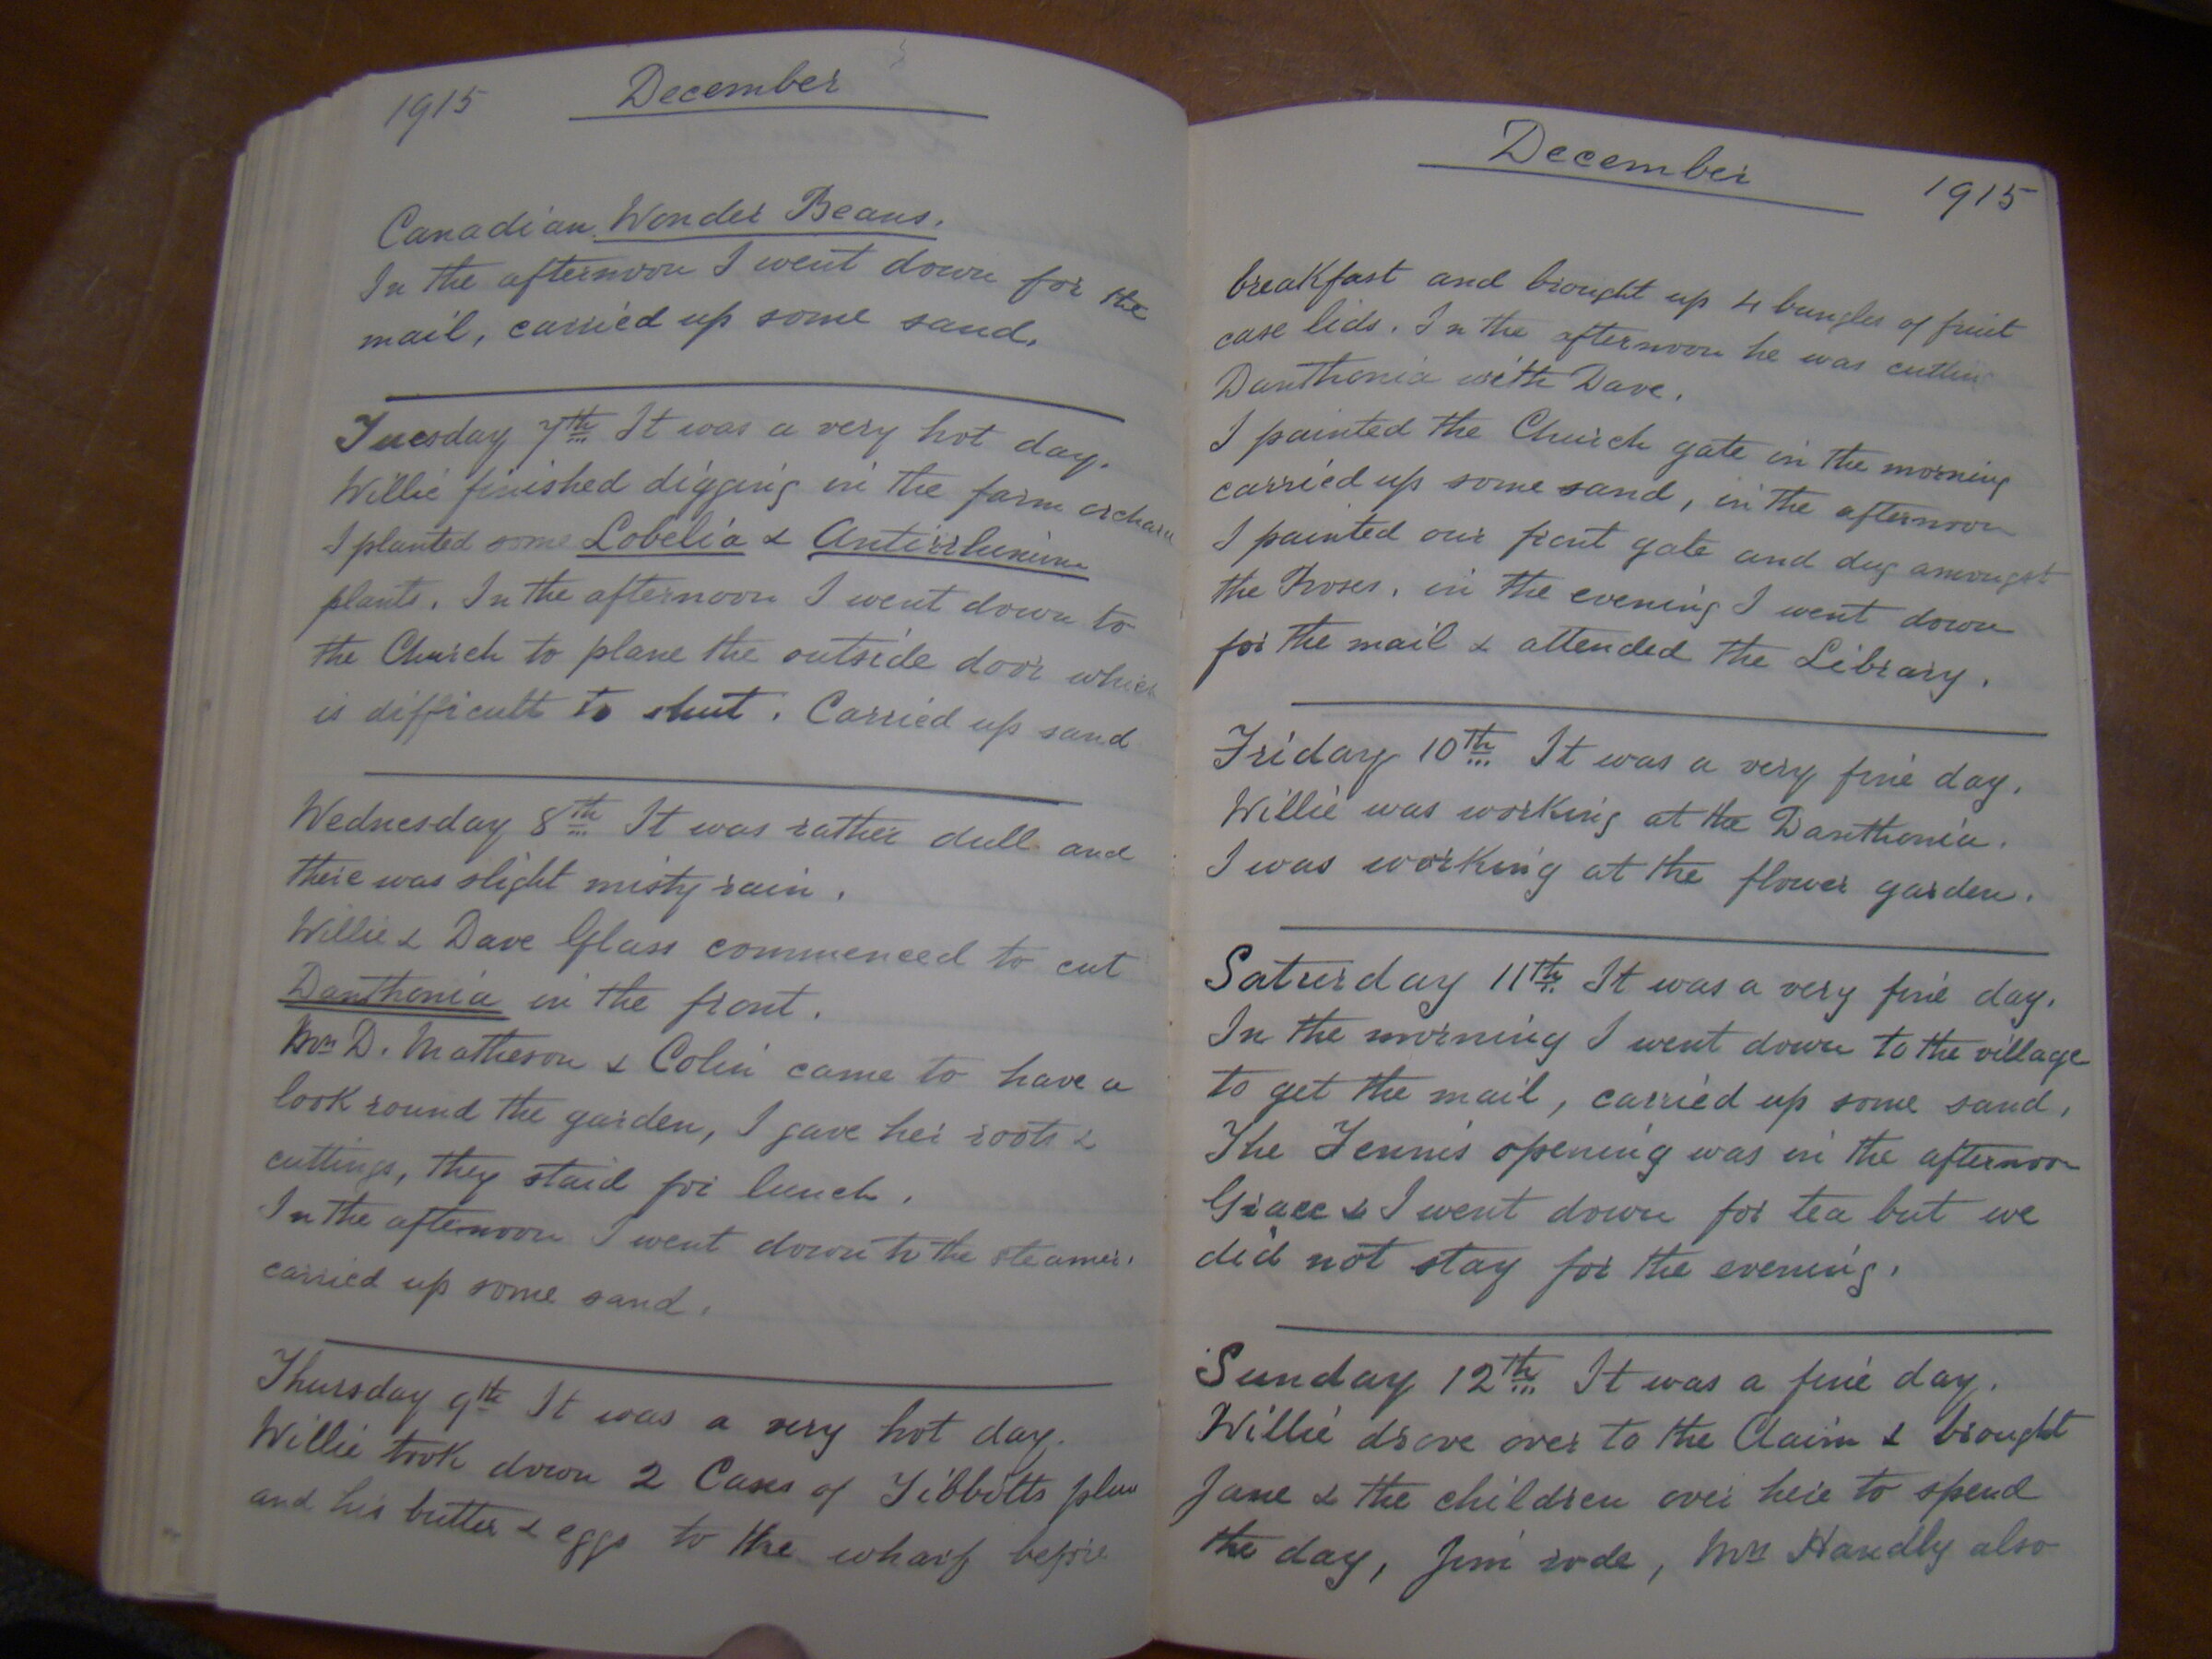 1915 December
Canadian Wonder Beans.
In the afternoon I went down for the
mail, carried up some sand.
Tuesday 7th It was a very hot day.
Willie finished digging in the farm orchard
I planted some Lobelia & Antirrhinum
plants. In the afternoon I went down to
the Church to plane the outside door which
is difficult to shut. Carried up sand
Wednesday 8th It was rather dull and
there was slight misty rain.
Willie & Dave Glass commenced to cut
Danthonia in the front.
Mrs D. Matheson & Colin came to have a
look round the garden, I gave her roots &
cuttings, they staid for lunch.
In the afternoon I went down to the steamer.
carried up some sand.
Thursday 9th It was a very hot day.
Willie took down 2 Cases of Tibbitts plum
and his butter & eggs to the wharf before
December 1915
breakfast and brought up 4 bungles of fruit
case lids. In the afternoon he was cutting
Danthonia with Dave.
I painted the Church gate in the morning
carried up some sand, in the afternoon
I painted our front gate and dug amongst
the Roses. in the evening I went down
for the mail & attended the Library.
Friday 10th It was a very fine day.
Willie was working at the Danthonia.
I was working at the flower garden.
Saturday 11th It was a very fine day.
In the morning I went down to the village
to get the mail, carried up some sand,
The Tennis opening was in the afternoon
Grace & I went down for tea but we
did not stay for the evening.
Sunday 12th It was a fine day.
Willie drove over to the Claim & brought
Jane & the children over here to spend
the day, Jim rode, Mrs Handly also